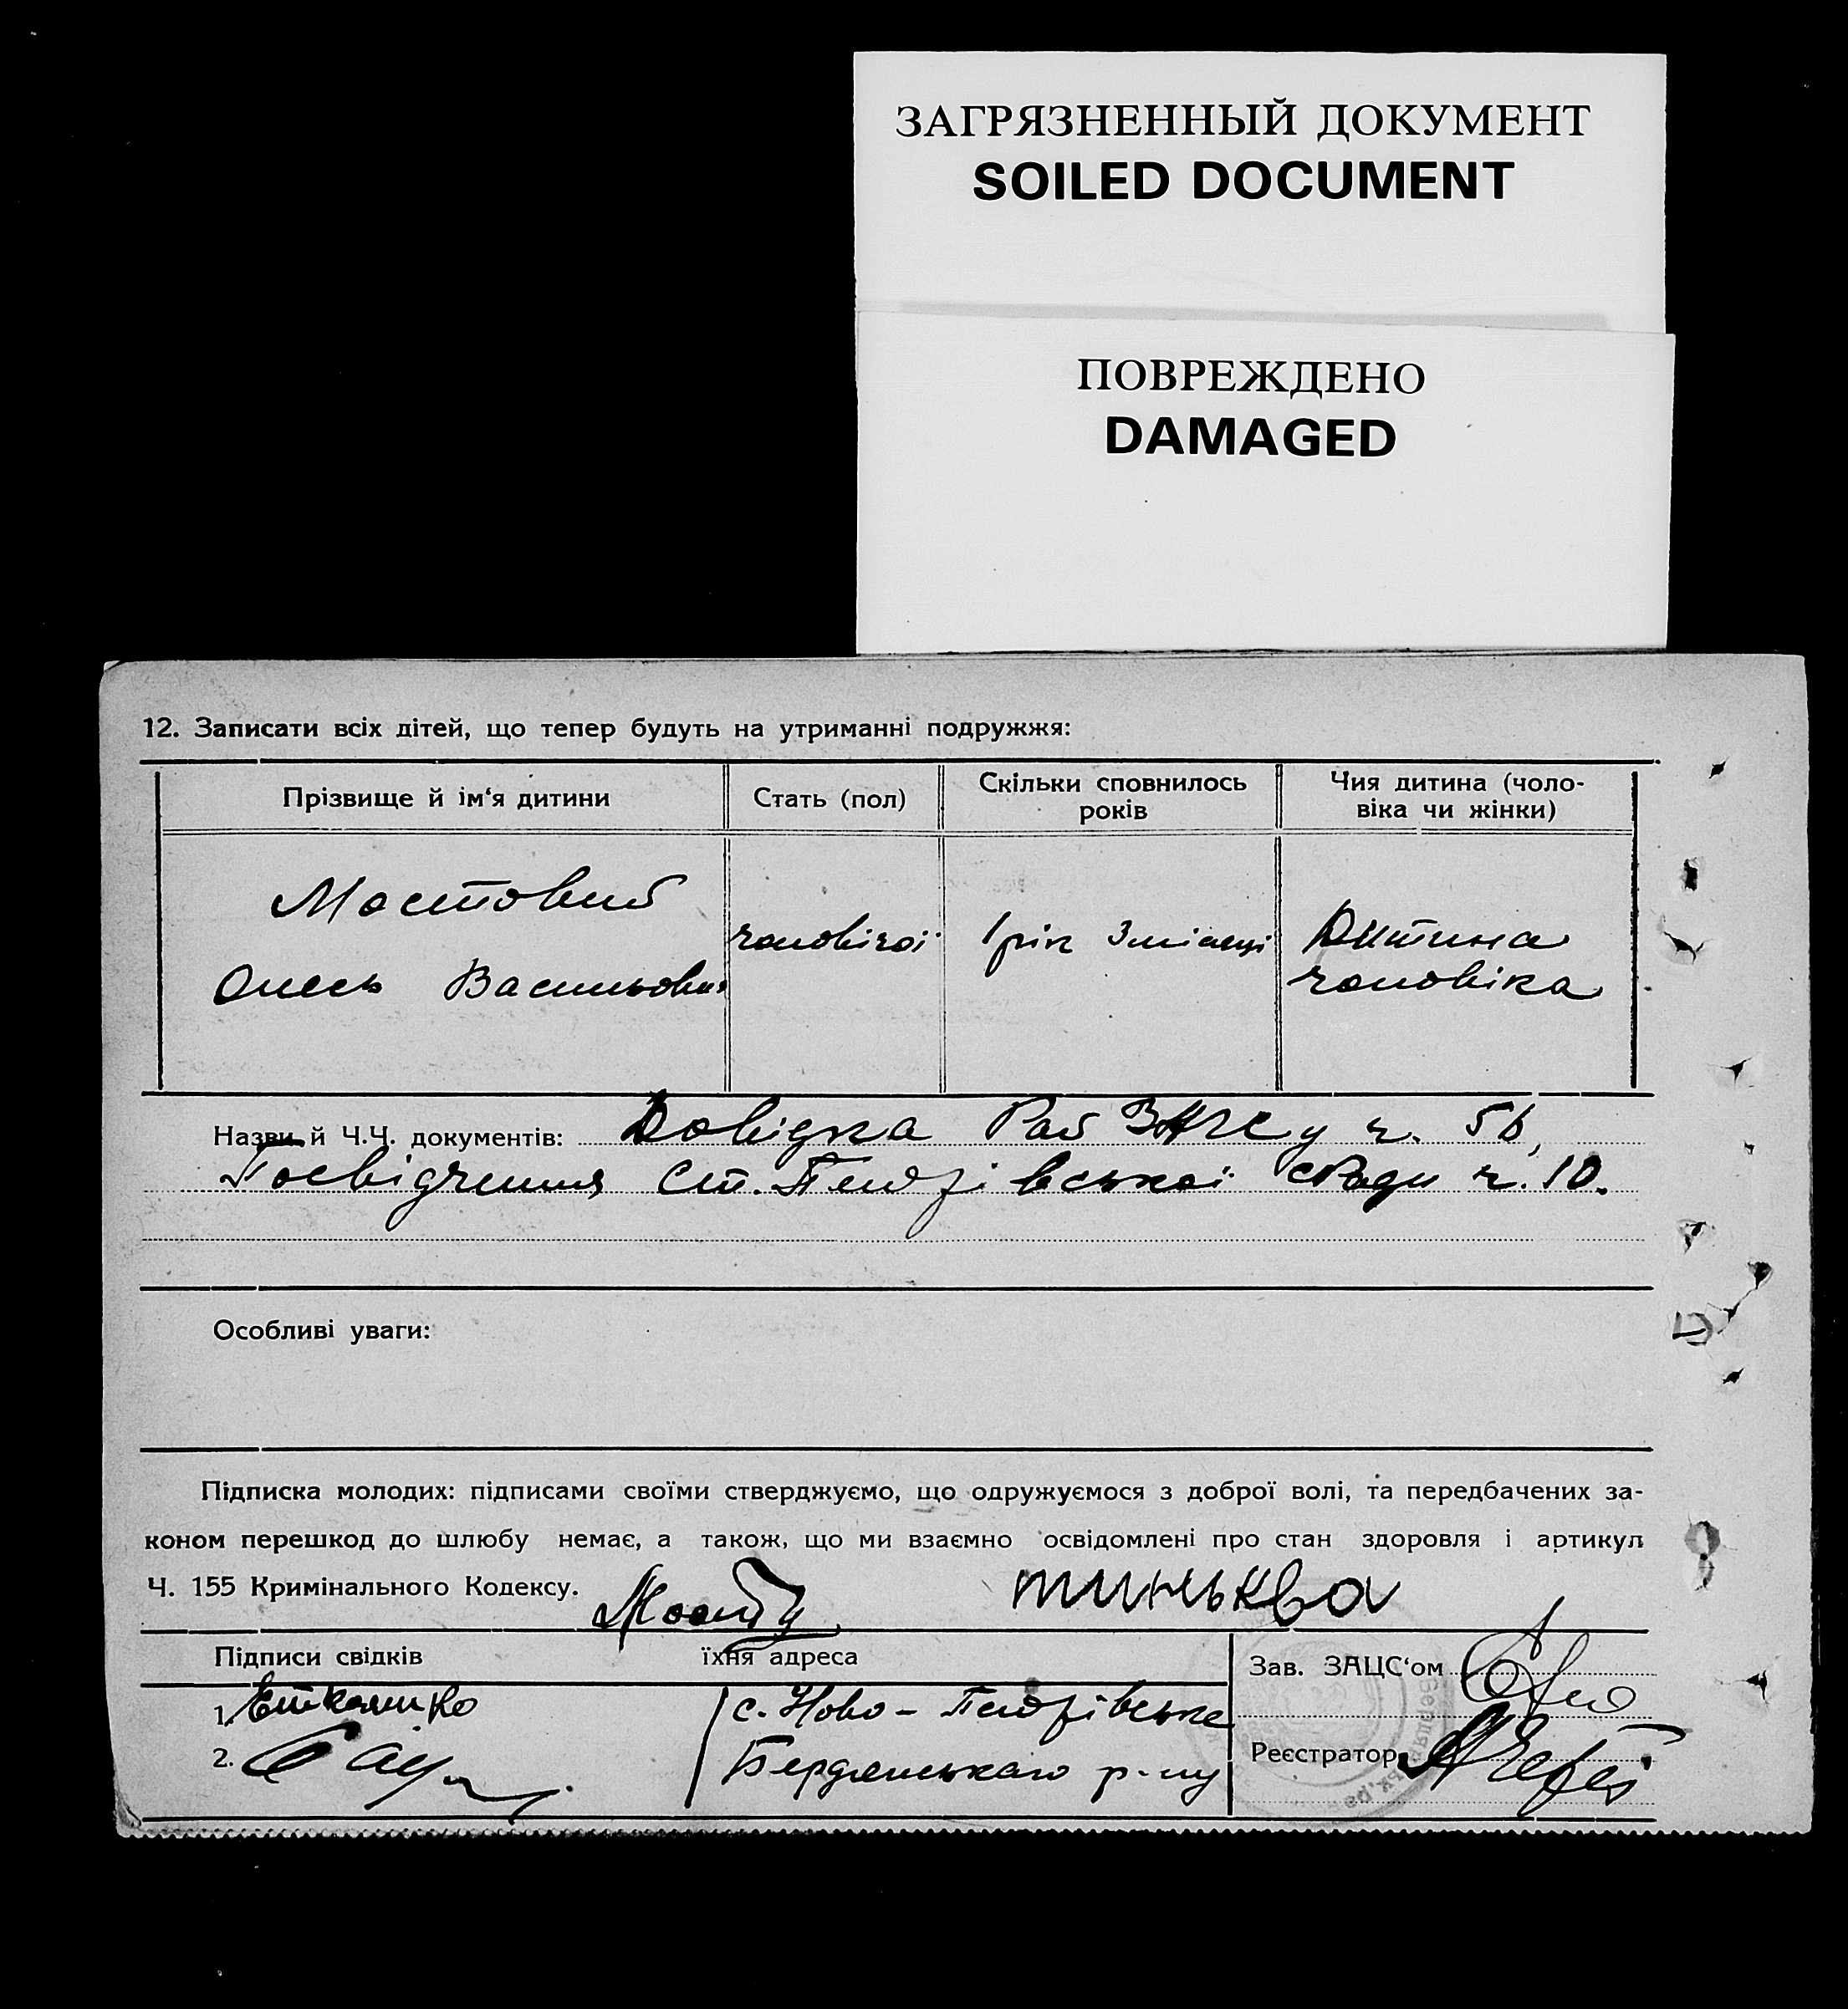 ЗАГРЯЗНЕННЫЙ ДОКУМЕНТ
SOILED DOCUMENT
ПОВРЕЖДЕНО
DAMAGED
12. Записати всіх дітей, що тепер будуть на утриманні подружжя:
Прізвище й ім‘я дитини
Стать (пол)
Скільки сповнилось
років
Чия дитина (чоло-
віка чи жінки)
Мостовий
Олесь Васильович
чоловічої
1 рік 3 місяці
Дитина
чоловіка
Назви й Ч.Ч. документів: Довідка Рай ЗАГСу ч. 56,
Посвідчення Ст. Петрівської с/Ради ч. 10.
Особливі уваги:
Підписка молодих: підписами своїми стверджуємо, що одружуємося з доброї волі, та передбачених за-
коном перешкод до шлюбу немає, а також, що ми взаємно освідомлені про стан здоровля і артикул
Ч. 155 Кримінального Кодексу.
тиньква
Підписи свідків
їхня адреса
Зав. ЗАЦС‘ом
1.
с. Ново-Петрівське
2.
Бердянського р-ну
Реєстратор